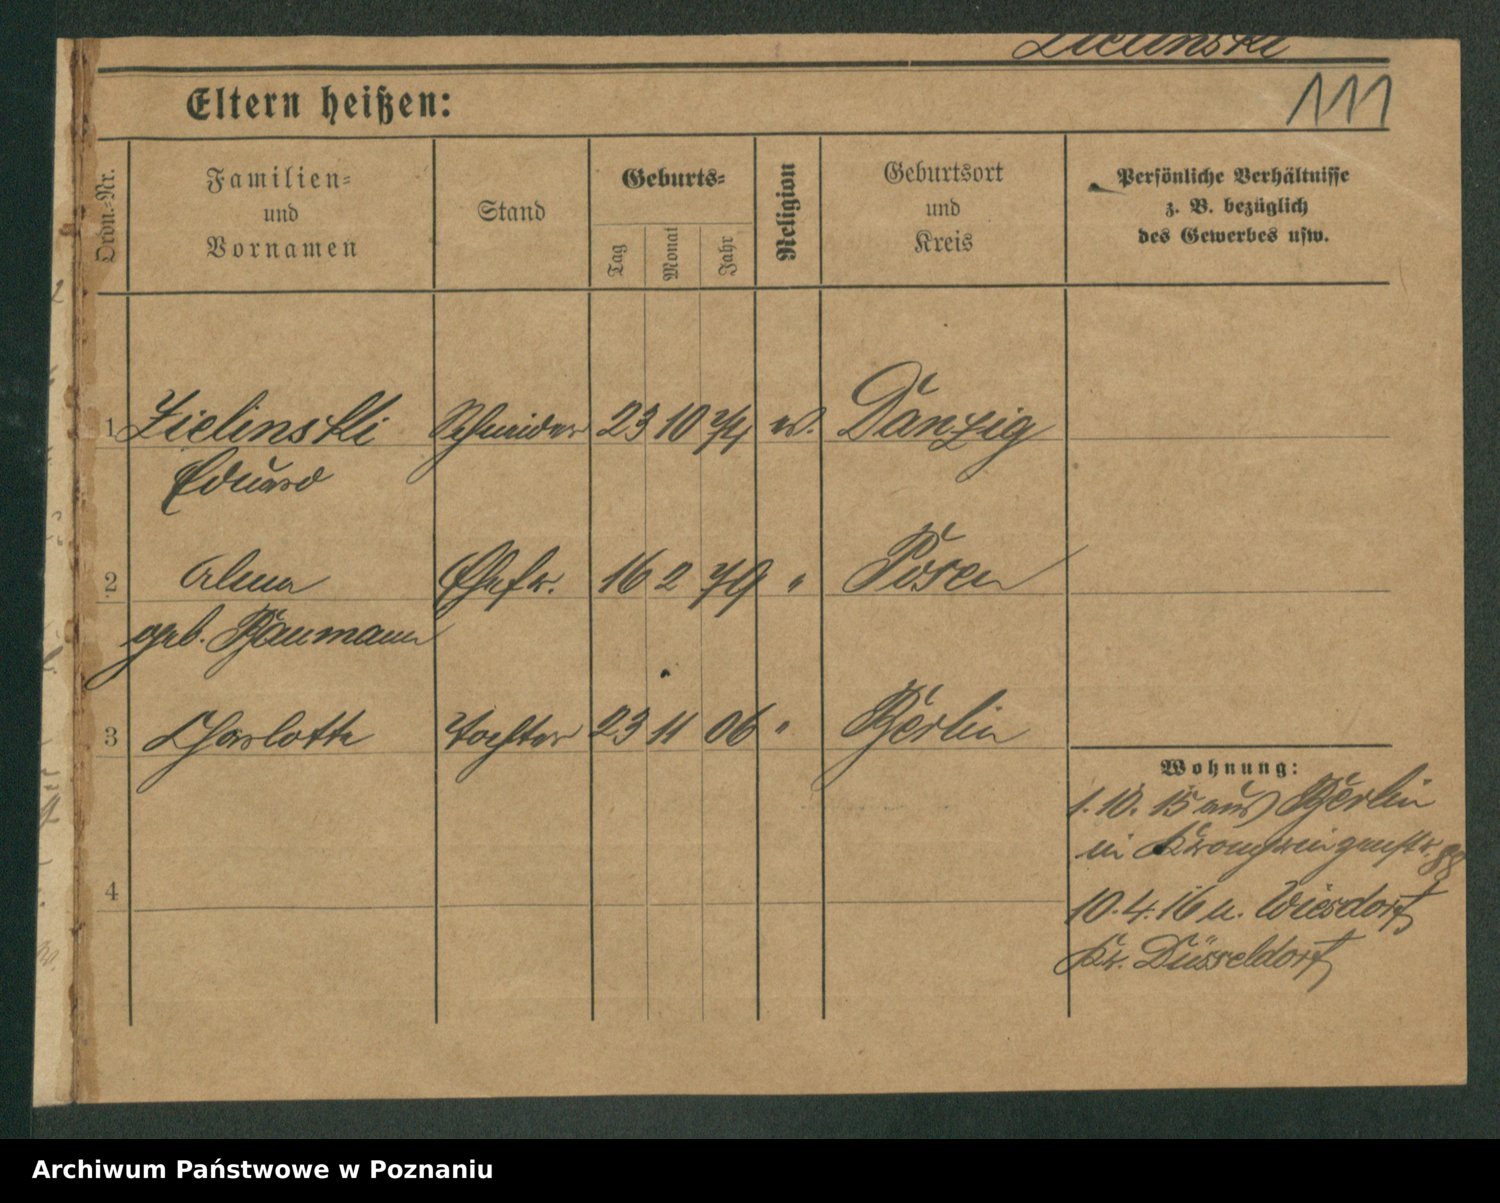 Zielinski
111
Eltern heißen:
Ordn.-Nr.
Familien-
und
Vornamen
Stand
Geburts-
Tag
Monat
Jahr
Religion
Geburtsort
und
Kreis
Persönliche Verhältnisse
z. B. bezüglich
des Gewerbes usw.
1 Zielinski Schneider 23 10 74 ev. Danzig
Eduard
2 Alma Ehefr. 16 2 79 " Posen
geb. Baumann
3 Charlotte Tochter 23 11 06 " Berlin
Wohnung:
1.10.15 aus Berlin
in Kronprinzenstr. 88
4
10.4.16 n. Wiesdorf
Kr. Düsseldorf
Archiwum Państwowe w Poznaniu